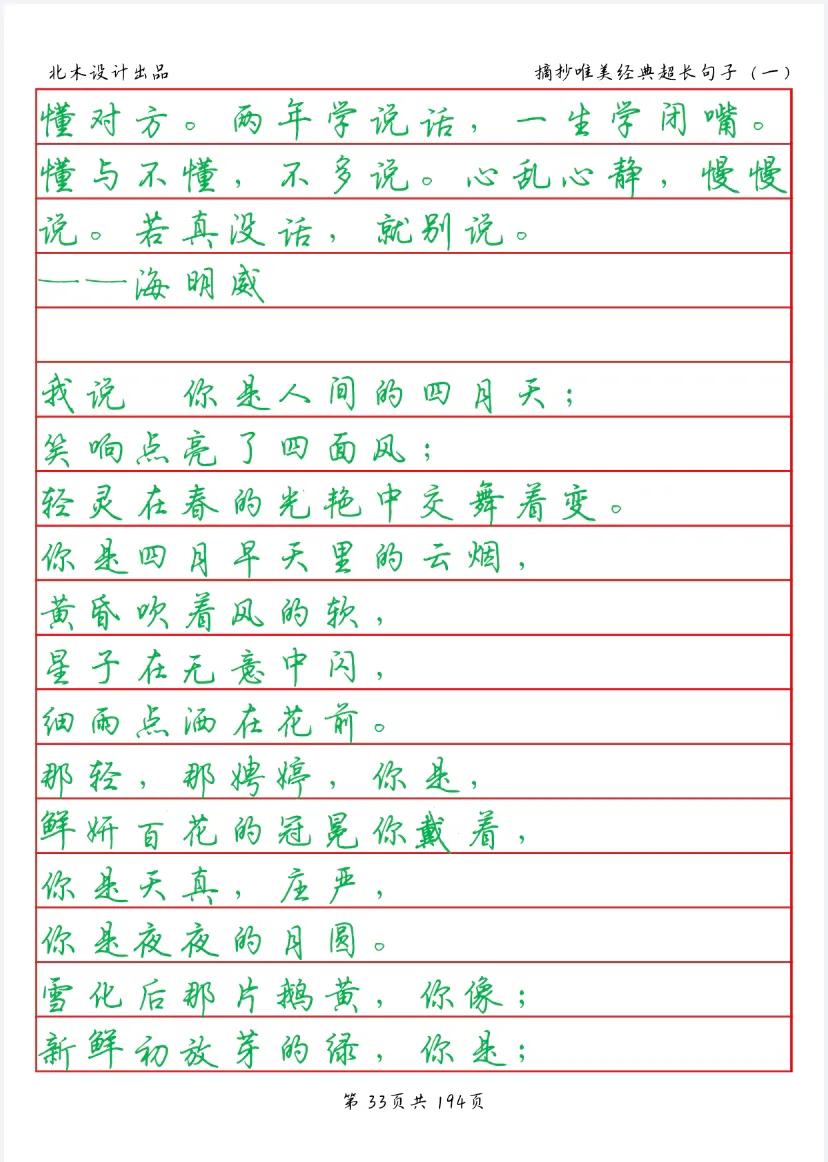 北木设计出品
摘抄唯美经典超长句子（一）
懂对方。两年学说话，一生学闭嘴。
懂与不懂，不多说。心乱心静，慢慢
说。若真没话，就别说。
——海明威
我说　你是人间的四月天；
笑响点亮了四面风；
轻灵在春的光艳中交舞着变。
你是四月早天里的云烟，
黄昏吹着风的软，
星子在无意中闪，
细雨点洒在花前。
那轻，那娉婷，你是，
鲜妍百花的冠冕你戴着，
你是天真，庄严，
你是夜夜的月圆。
雪化后那片鹅黄，你像；
新鲜初放芽的绿，你是；
第 33页共 194页